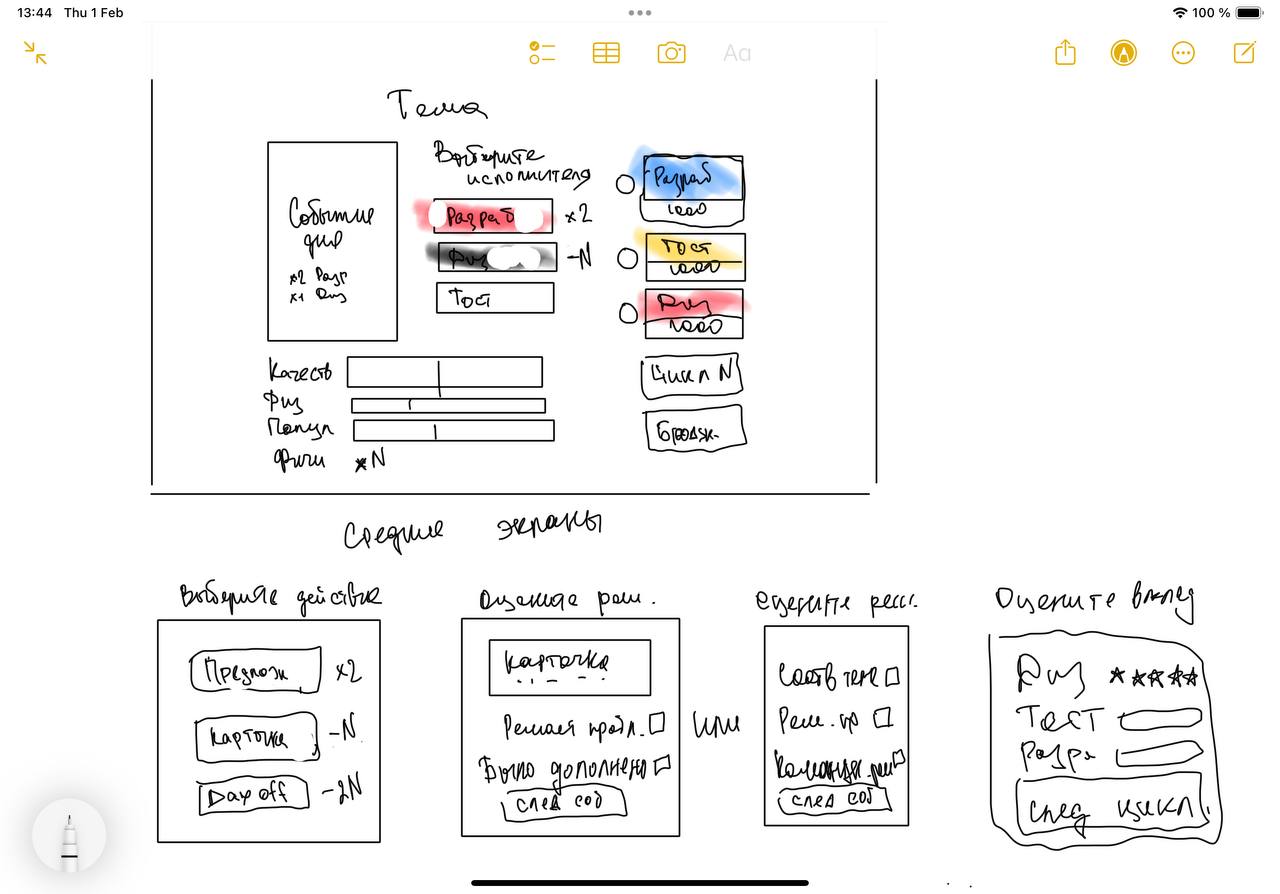 13:44 Thu 1 Feb
100 %
Aa
Тема
Событие
дня
x2 Разр
x1 Диз
Выберите
исполнителя
Разраб x2
Диз -N
Тест
Разраб
1000
Тест
1000
Диз
1000
Цикл N
Бюдж.
Качеств
Физ
Попул
Фичи xN
Средние экраны
Выберите действие
Предлож x2
Карточка -N
Day off -2N
Оцените реш.
Карточка
Решает пробл.
Было дополнено
след соб
или
Оцените реш.
Соотв теме
Реш. пр
Командн. реш
след соб
Оцените вклад
Диз ★★★★★
Тест
Разр.
след цикл